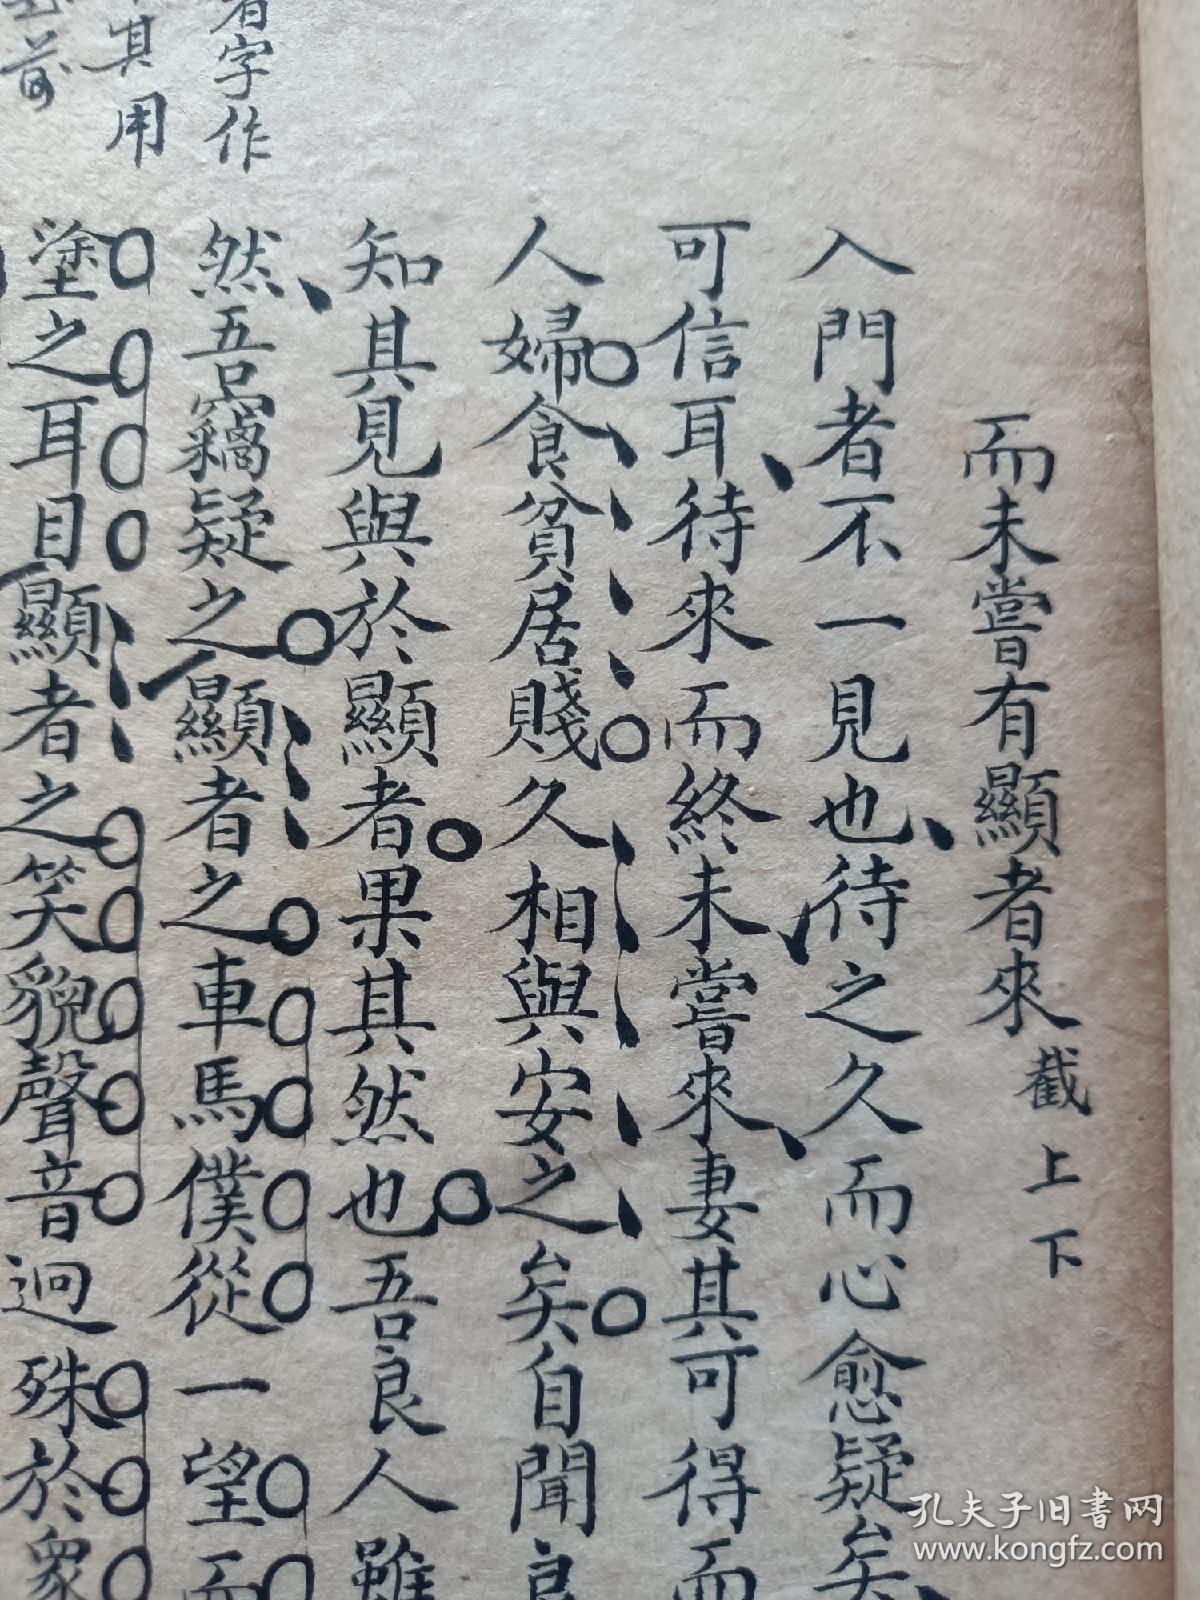 而未嘗有顯者來 截上下
入門者不一見也待之久而心愈疑矣
可信耳待來而終未嘗來妻其可得而
人婦食貧居賤久相與安之矣自聞良
知其見與於顯者果其然也吾良人雖
然吾竊疑之顯者之車馬僕從一望而
塗之耳目顯者之笑貌聲音迥殊於眾
者字作
其用
前
孔夫子旧书网
www.kongfz.com